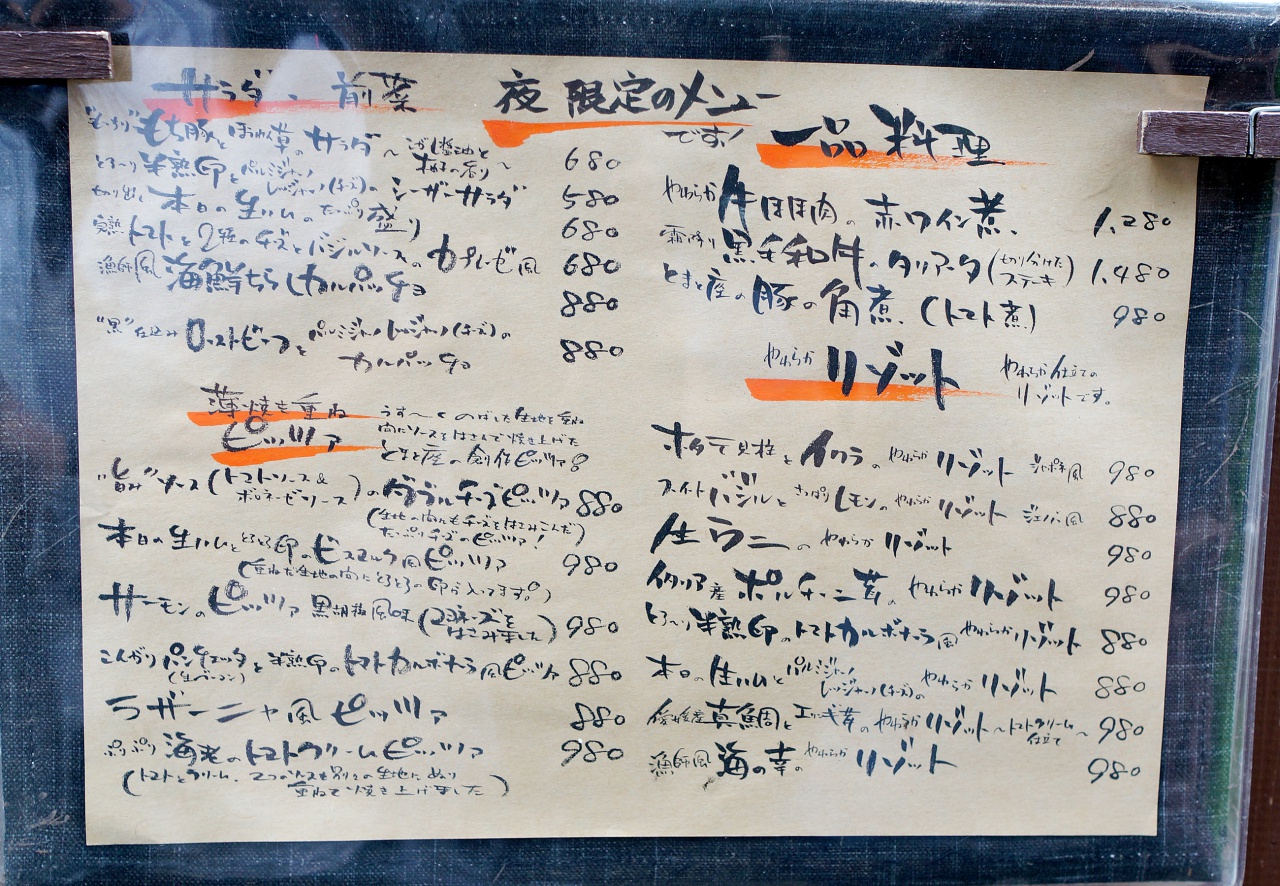 夜限定のメニューです!
サラダ・前菜
"もっちり"もち豚とほうれん草のサラダ 〜こがし醤油と柚子の香り〜 680
とろ〜り半熟卵とパルミジャーノレッジャーノ(チーズ)のシーザーサラダ 580
切り出し本日の生ハムのたっぷり盛り 680
完熟トマトと2種のチーズとバジルソースのカプレーゼ風 680
漁師風海鮮ちらしカルパッチョ 880
"黒"仕込みローストビーフとパルミジャーノレッジャーノ(チーズ)の
カルパッチョ 880
薄焼き重ね
ピッツァ
うす〜くのばした生地を重ね
間にソースをはさんで焼き上げた
とまと座の創作ピッツァ。
"旨み"ソース(トマトソース&ボロネーゼソース)のダブルチーズピッツァ 880
(生地の間にもチーズをはさみこんだ
たっぷりチーズのピッツァ!)
本日の生ハムととろとろ卵のビスマルク風ピッツァ 980
(重ねた生地の間にとろとろの卵が入ってます。)
サーモンのピッツァ黒胡椒風味(マヨネーズをはさみました) 980
こんがりパンチェッタと半熟卵のトマトカルボナーラ風ピッツァ 880
(生ベーコン)
ラザーニャ風ピッツァ 880
ぷりぷり海老のトマトクリームピッツァ 980
(トマトとクリーム、2つのソースを別々の生地にぬり
重ねて焼き上げました)
一品料理
やわらか牛ホホ肉の赤ワイン煮 1,280
霜降り黒毛和牛のタリアータ(切り分けたステキ) 1,480
とまと座の豚の角煮(トマト煮) 980
やわらかリゾット
やわらか仕立ての
リゾットです。
ホタテ貝柱とイクラのやわらかリゾット 980
スイートバジルとさっぱりレモンのやわらかリゾット ジェノバ風 880
生ウニのやわらかリゾット 980
イタリア産ポルチーニ茸のやわらかリゾット 980
とろ〜り半熟卵のトマトカルボナーラ風やわらかリゾット 880
本日の生ハムとパルミジャーノレッジャーノ(チーズ)のやわらかリゾット 880
愛媛産真鯛とエリンギ茸のやわらかリゾット〜トマトクリーム仕立て〜 980
漁師風海の幸のやわらかリゾット 980